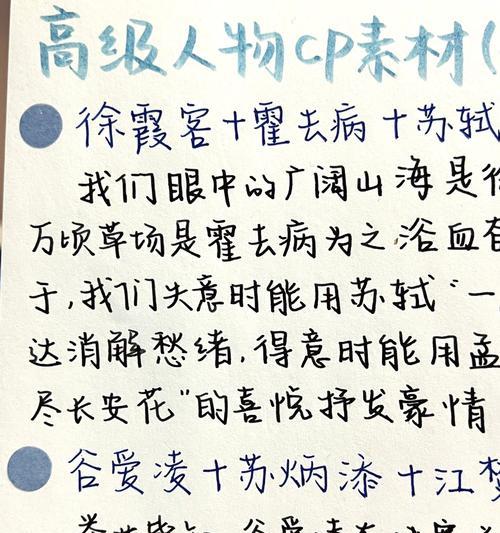 高级人物CP素材(
徐霞客+霍去病+苏轼
我们眼中的广阔山海是徐
万顷草场是霍去病为之浴血奋
于,我们失意时能用苏轼“一
达消解愁绪.得意时能用孟
尽长安花”的喜悦抒发豪情
谷爱凌+苏炳添+江梦